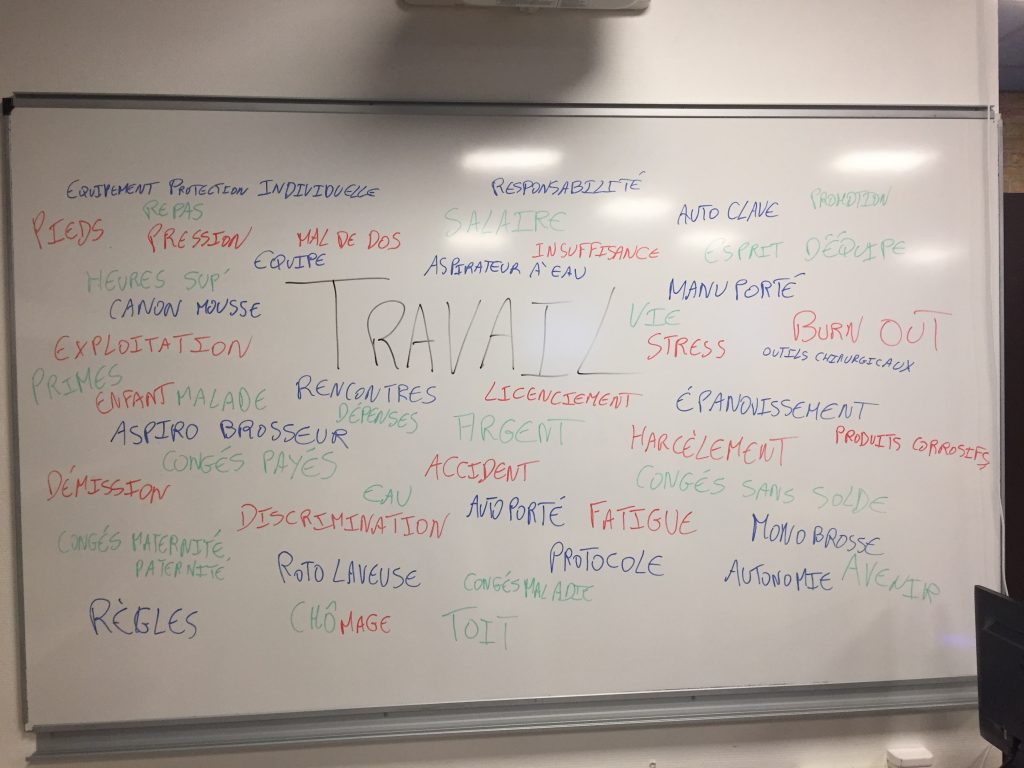 EQUIPEMENT PROTECTION INDIVIDUELLE
RESPONSABILITÉ
PROMOTION
REPAS
SALAIRE
AUTO CLAVE
PIEDS
PRESSION
MAL DE DOS
INSUFFISANCE
ESPRIT D'ÉQUIPE
EQUIPE
ASPIRATEUR À EAU
HEURES SUP'
MANU PORTÉ
CANON MOUSSE
TRAVAIL
VIE
BURN OUT
EXPLOITATION
STRESS
OUTILS CHIRURGICAUX
PRIMES
ENFANT MALADE
RENCONTRES
LICENCIEMENT
ÉPANOUISSEMENT
DÉPENSES
ASPIRO BROSSEUR
ARGENT
HARCÈLEMENT
PRODUITS CORROSIFS
CONGÉS PAYÉS
ACCIDENT
CONGÉS SANS SOLDE
DÉMISSION
EAU
DISCRIMINATION
AUTO PORTÉ
FATIGUE
MONO BROSSE
CONGÉS MATERNITÉ,
PATERNITÉ
ROTO LAVEUSE
PROTOCOLE
CONGÉS MALADIE
AUTONOMIE
AVENIR
RÈGLES
CHÔMAGE
TOIT